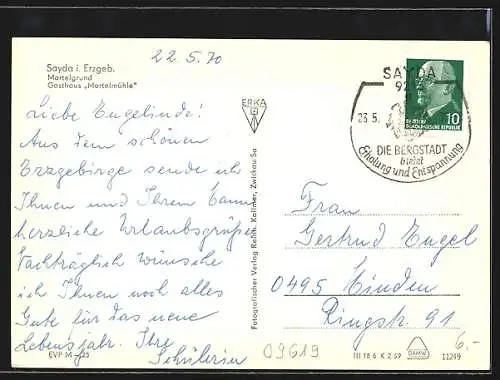 22.5.70
Sayda i. Erzgeb.
Mortelgrund
Gasthaus „Mortelmühle"
Liebe Engelinde!
Aus dem schönen
Erzgebirge sende ich
Ihnen und Ihrem Mann
herzliche Urlaubsgrüße
Nachträglich wünsche
ich Ihnen noch alles
Gute für das neue
Lebensjahr. Ihre
Schülerin
EVP M -,25
ERKA
Fotografischer Verlag Reinh. Kallmer, Zwickau Sa
SAYDA
92
23.5.
DIE BERGSTADT
bietet
Erholung und Entspannung
10
DEUTSCHE
DEMOKRATISCHE REPUBLIK
Frau
Gertrud Engel
0495 Minden
Ringstr. 91
6.-
09619
III 18 6 K 2 69
11249